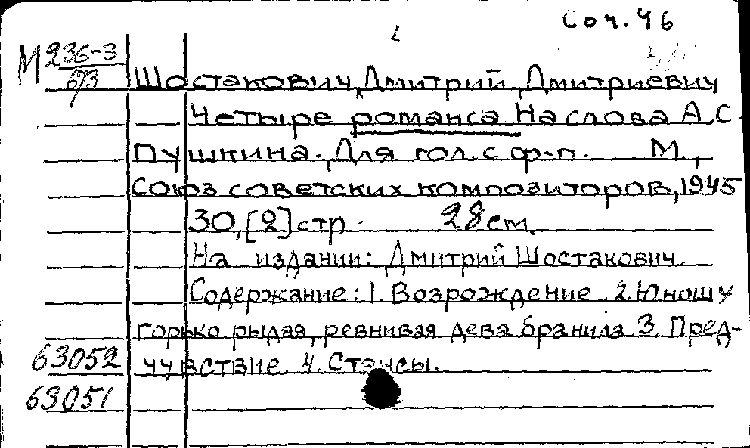 Соч. 46
М 236-3
Шостакович, Дмитрий Дмитриевич
Четыре романса. На слова А.С.
Пушкина. Для гол. с ф-п. М.,
Союз советских композиторов, 1945
30, [2] стр. 28 см.
На издании: Дмитрий Шостакович.
Содержание: 1. Возрождение 2. Юношу
горько рыдая, ревнивая дева бранила 3. Пред-
63052 чувствие 4. Стансы.
63051